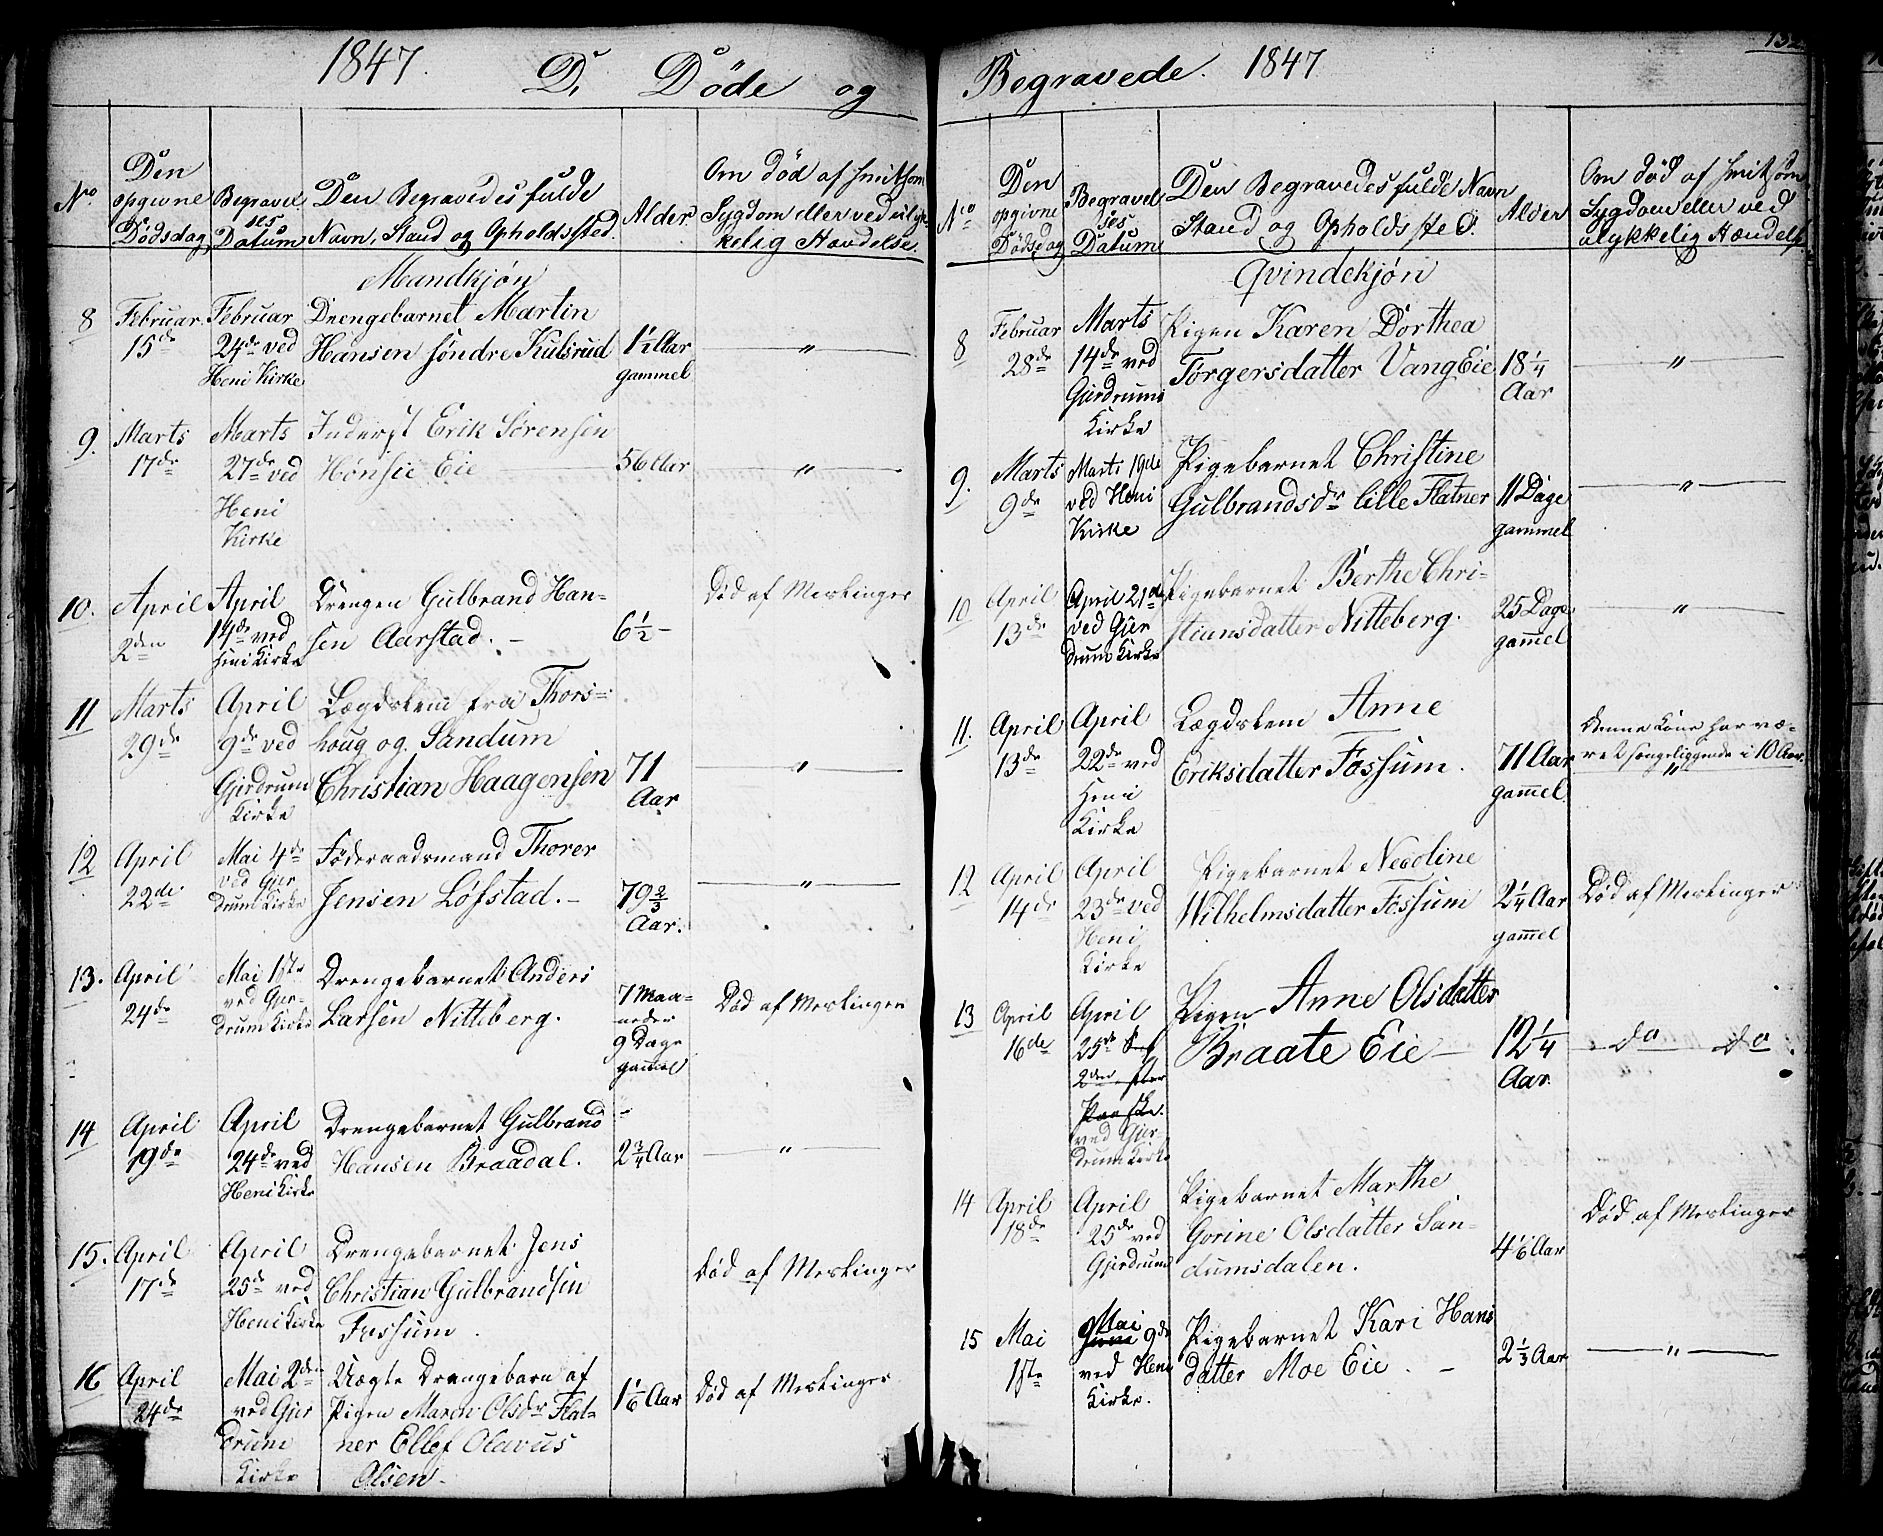 1847. D, Döde og
No
Den opgivne Dödsdag
Begravelses Datum
Den Begravedes fulde Navn, Stand og Opholdssted.
Alder.
Om död af smitsom Sygdom eller ved ulykkelig Hændelse.
Mandkjön
8 Februar 15de Februar 24de ved Heni Kirke Drengebarnet Martin Hansen söndre Kulsrud 1½ Aar gammel "
9. Marts 17de Marts 27de ved Heni Kirke Inderst Erik Sörensen Hönsie Eie 56 Aar "
10. April 2den April 14de ved Heni Kirke Drengen Gulbrand Hansen Aarstad. 6½ Död af Meslinger
11 Marts 29de April 9de ved Gjerdrum Kirke Lægdslem fra Thorshoug og Sandum Christian Haagensen 71 Aar "
12 April 22de Mai 4de ved Gjerdrum Kirke Föderaadsmand Thorer Jensen Löfstad. 79⅔ Aar. "
13. April 24de Mai 1ste ved Gjerdrum Kirke Drengebarnet Anders Larsen Nitteberg. 7 Maaneder 9 Dage gammel Död af Meslinger
14 April 19de April 24de ved Heni Kirke Drengebarnet Gulbrand Hansen Braadal. 2¾ Aar "
15. April 17de April 25de ved Heni Kirke Drengebarnet Jens Christian Gulbrandsen Fossum. Död af Meslinger
16 April 24de Mai 2den ved Gjerdrum Kirke Uægte Drengebarn af Pigen Maren Olsdr Flatner Ellef Olavus Olsen. 1⅙ Aar Död af Meslinger
Begravede. 1847
132
No
Den opgivne Dödsdag
Begravelses Datum
Den Begravedes fulde Navn Stand og Opholdssted.
Alder
Om död af smitsom Sygdom eller ved ulykkelig Hændelse
Qvindekjön
8 Februar 28de Marts 14de ved Gjerdrums Kirke Pigen Karen Dorthea Torgersdatter Vang Eie 18¼ Aar "
9. Marts 9de Marts 19de ved Heni Kirke Pigebarnet Christine Gulbrandsdr lille Flatner 11 Dage gammel "
10 April 13de April 21de ved Gjerdrum Kirke Pigebarnet Berthe Christiansdatter Nitteberg. 25 Dage gammel "
11. April 13de April 22de ved Heni Kirke Lægdslem Anne Eriksdatter Fossum. 71 Aar gammel Denne Kone har været sengeliggende i 10 Aar. "
12 April 14de April 23de ved Heni Kirke Pigebarnet Neoline Wilhelmsdatter Fossum 2¼ Aar gammel Död af Meslinger
13 April 16de April 25de 2den efter Paaske. ved Gjerdrum Kirke Pigen Anne Olsdatter Braate Eie 12¼ Aar. do do.
14 April 18de April 25de ved Gjerdrum Pigebarnet Marthe Gorine Olsdatter Sandumsdalen. 4⅙ Aar Död af Meslinger
15 Mai 1ste Mai 9de ved Heni Kirke. Pigebarnet Kari Hansdatter Moe Eie. 2⅓ Aar "